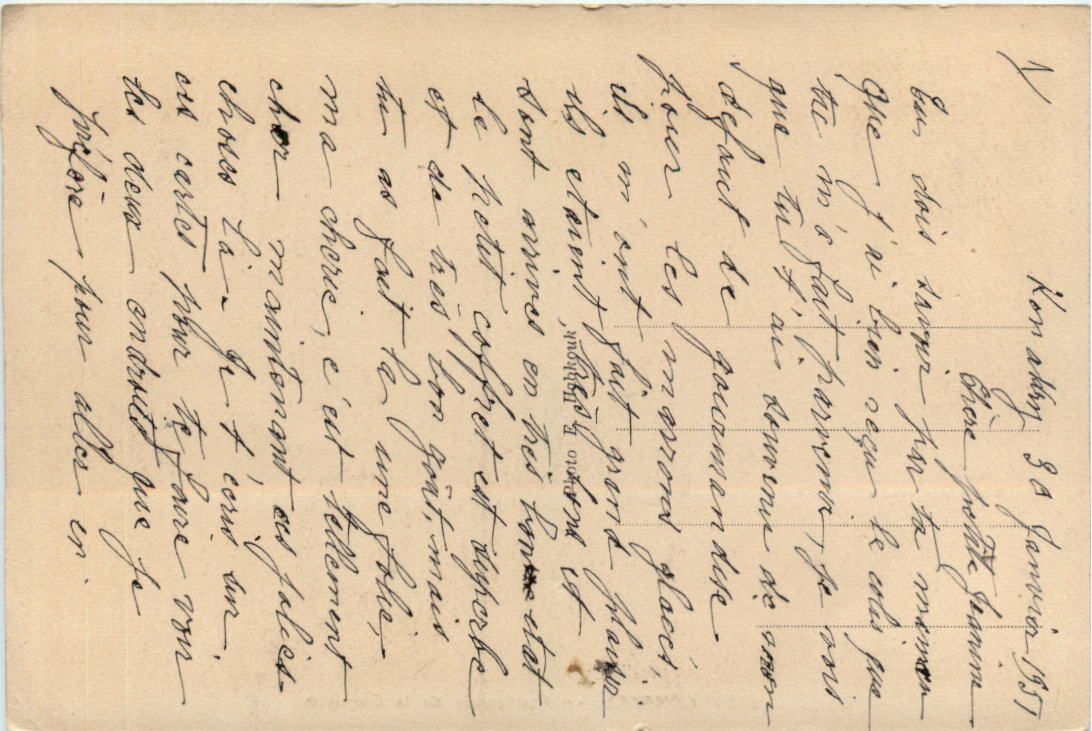 1/
Konakry 30 Janvier 1951
Chère petite Jeannine
Tu dois savoir par ta maman
que j'ai bien reçu le colis que
tu m'a fait parvenir, je vois
que tu t'ai souvenue de mon
defaut de gourmandise.
pour les marrons glacés,
ils m'ont fait grand plaisir
ils étaient très bons et
sont arrives en très bon etat
le petit coffret est superbe
et de très bon goût, mais
tu as fait là une folie,
ma cherie, c'est tellement
cher maintenant ces jolies
choses là. Je t'écris sur
ces cartes pour te faire voir
les deux endroits que je
préfère pour aller en
Photo